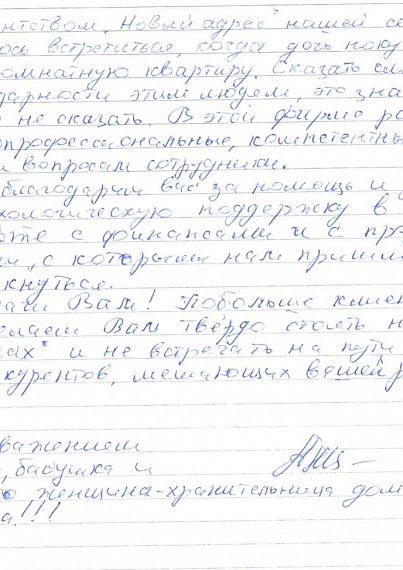 нтством. "Новый адрес" нашей се
ось встретиться, когда дочь поку
омнатную квартиру. Сказать сл
дарности этим людям, это зна
о не сказать. В этой фирме ра
опрофессиональные, компетентны
м вопросам сотрудники.
благодарим вас за помощь и
хологическую поддержку в
оте с финансами и с пр
ми, с которыми нам приш
кнуться.
Вам! Побольше клиен
елаем Вам твёрдо стоять н
ах" и не встречать на пути
курентов, мешающих вашей р
важением
, бабушка и
о женщина-хранительница дом
а!!!